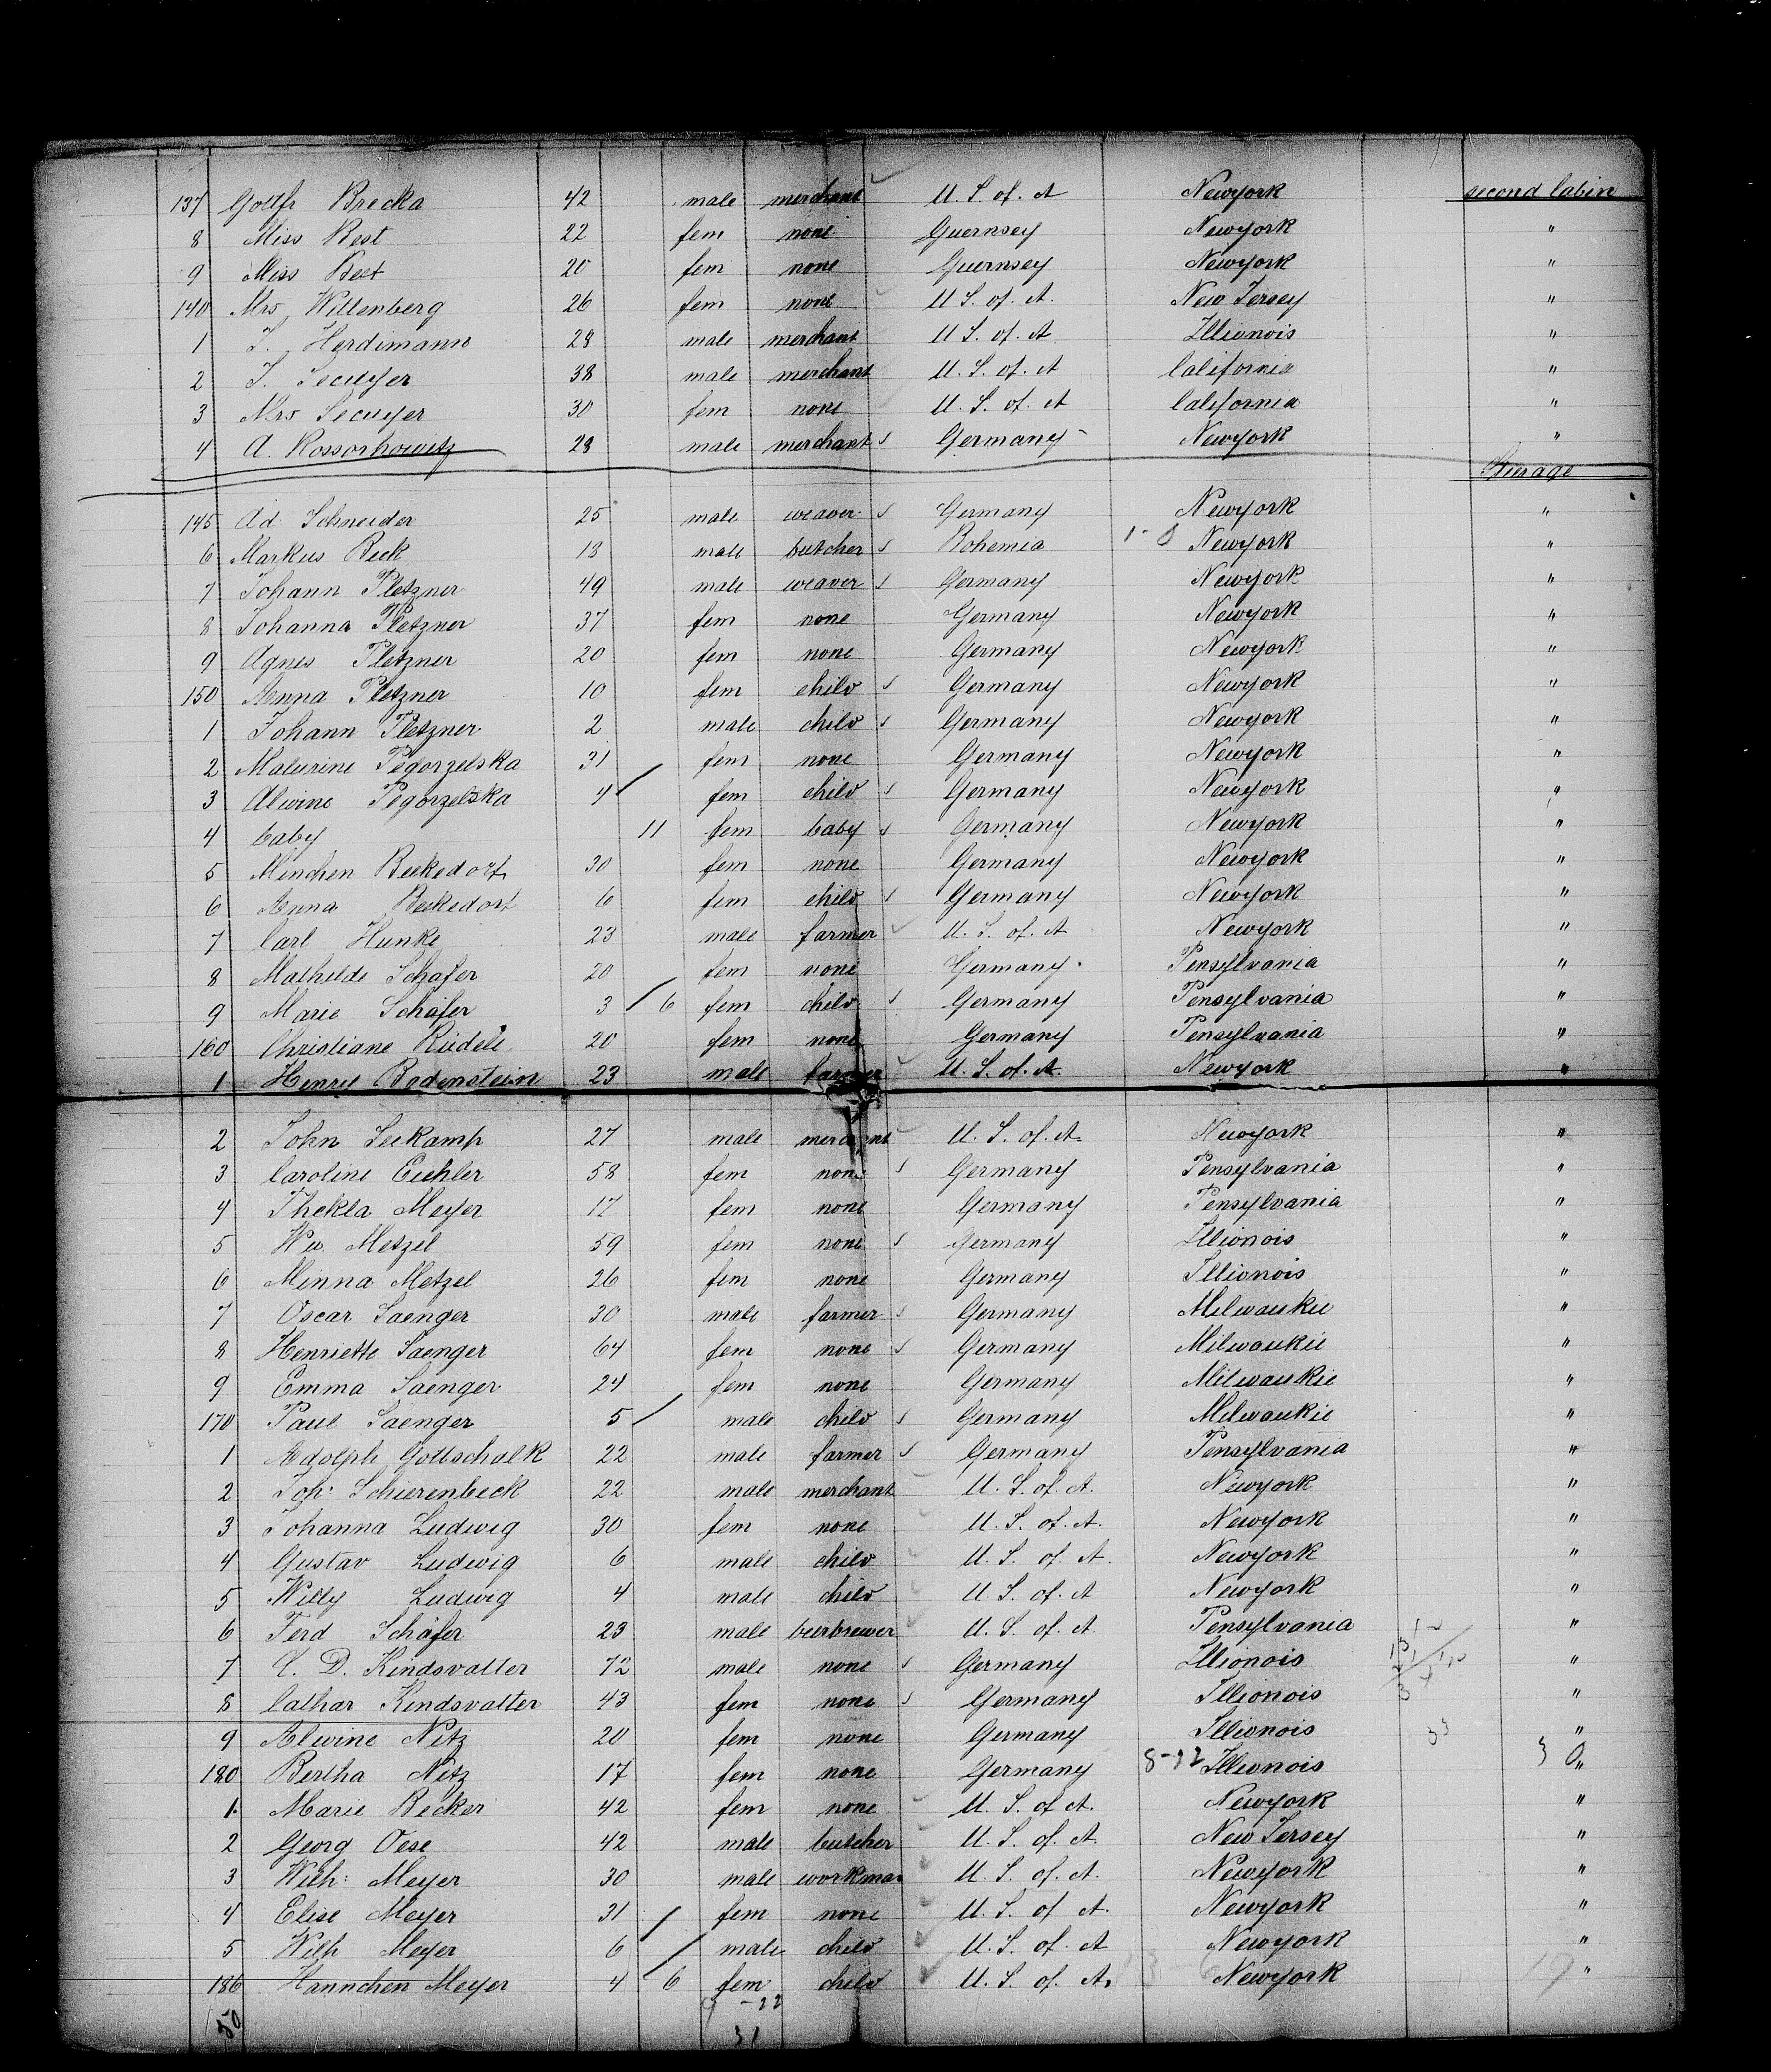 137 Gottfr Brecka 42 male merchant U. S. of. A Newyork second Cabin
8 Miss Best 22 fem none Guernsey Newyork "
9 Miss Best 20 fem none Guernsey Newyork "
140 Mrs Willenberg 26 fem none U S. of. A. New Jersey "
1 J. Herdimann 28 male merchant U S. of. A Illionois "
2 J. Secuyer 38 male merchant U. S. of. A California "
3 Mrs Secuyer 30 fem none U. S. of. A California "
4 A. 28 male merchant Germany Newyork "
Steerage
145 Ad. Schneider 25 male weaver Germany Newyork "
6 Markus Beck 18 male butcher Bohemia Newyork "
7 Johann Pletzner 49 male weaver Germany Newyork "
8 Johanna Pletzner 37 fem none Germany Newyork "
9 Agnes Pletzner 20 fem none Germany Newyork "
150 Anna Pletzner 10 fem child Germany Newyork "
1 Johann Pletzner 2 male child Germany Newyork "
2 Malurine Pegorzelska 31 fem none Germany Newyork "
3 Alwine Pegorzelska 4 fem child Germany Newyork "
4 baby 11 fem baby Germany Newyork "
5 Minchen Beckedorf 30 fem none Germany Newyork "
6 Anna Beckedorf 6 fem child Germany Newyork "
7 Carl Hunke 23 male farmer U. S. of. A Newyork "
8 Mathilde Schafer 20 fem none Germany Pensylvania "
9 Marie Schäfer 3 6 fem child Germany Pensylvania "
160 Christiane Rüdele 20 fem none Germany Pensylvania "
1 Henry Bodenstein 23 male farmer U. S. of. A. Newyork "
2 John Seekamp 27 male merchant U. S. of. A. Newyork "
3 Caroline Eichler 58 fem none Germany Pensylvania "
4 Thekla Meyer 17 fem none Germany Pensylvania "
5 Ww. Metzel 59 fem none Germany Illionois "
6 Minna Metzel 26 fem none Germany Illionois "
7 Oscar Saenger 30 male farmer Germany Milwaukie "
8 Henriette Saenger 64 fem none Germany Milwaukie "
9 Emma Saenger 24 fem none Germany Milwaukie "
170 Paul Saenger 5 male child Germany Milwaukie "
1 Adolph Gottschalk 22 male farmer Germany Pensylvania "
2 Joh: Schierenbeck 22 male merchant U. S. of. A. Newyork "
3 Johanna Ludwig 30 fem none U. S. of. A. Newyork "
4 Gustav Ludwig 6 male child U. S. of. A. Newyork "
5 Willy Ludwig 4 male child U. S. of. A Newyork "
6 Ferd Schäfer 23 male beerbrewer U. S. of. A. Pensylvania "
7 C. D. Kindsvatter 72 male none Germany Illionois "
8 Cathar Kindsvatter 43 fem none Germany Illionois "
9 Alwine Nitz 20 fem none Germany Illionois 33 "
180 Bertha Nitz 17 fem none Germany Illionois "
1. Marie Becker 42 fem none U. S. of A. Newyork "
2 Georg Oese 42 male butcher U. S. of. A. New Jersey "
3 Wilh: Meyer 30 male workman U. S. of. A. Newyork "
4 Elise Meyer 31 fem none U. S. of A. Newyork "
5 Wilh Meyer 6 male child U. S. of. A Newyork "
186 Hannchen Meyer 4 6 fem child U. S. of A. Newyork "
50 31